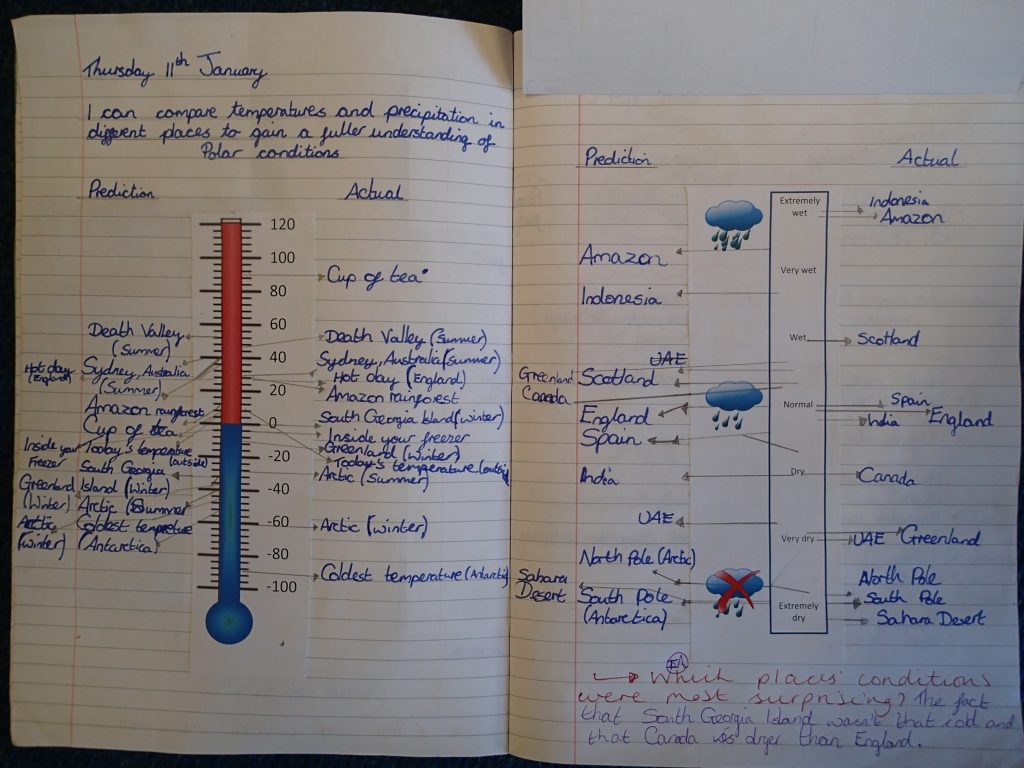 Thursday 11th January
I can compare temperatures and precipitation in
different places to gain a fuller understanding of
Polar conditions
Prediction
Actual
120
100
80
60
40
20
0
-20
-40
-60
-80
-100
Death Valley
(Summer)
Hot day
(England)
Sydney, Australia
(Summer)
Amazon rainforest
Cup of tea
Inside your
Freezer
Today's temperature
(outside)
South Georgia
Island (Winter)
Greenland
(Winter)
Arctic Summer
Arctic
(winter)
Coldest tempreture
(Antarctica)
Cup of tea
Death Valley (Summer)
Sydney, Australia (summer)
Hot day (England)
Amazon rainforest
South Georgia Island (winter)
Inside your freezer
Greenland (Winter)
Today's temperature (outsid
Arctic (Summer)
Arctic (winter)
Coldest temperature (Antarctic
Prediction
Actual
Extremely
wet
Very wet
Wet
Normal
Dry
Very dry
Extremely
dry
Amazon
Indonesia
UAE
Scotland
Greenland
Canada
England
Spain
India
UAE
North Pole (Arctic)
Sahara
Desert
South Pole
(Antarctica)
Indonesia
Amazon
Scotland
Spain
India
England
Canada
UAE
Greenland
North Pole
South Pole
Sahara Desert
Which places' conditions
were most surprising? The fact
that South Georgia Island wasn't that cold and
that Canada was dryer than England.